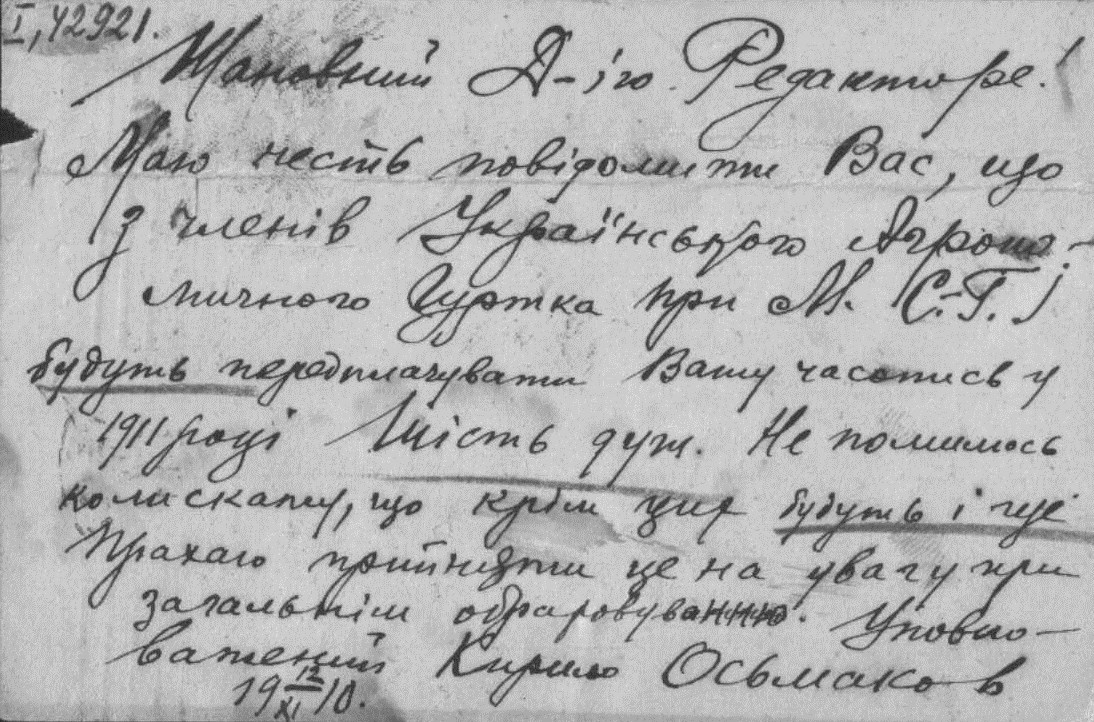 I, 42921.
Шановний Д-ію Редакторе!
Маю честь повідомити Вас, що
з членів Українського Агроно-
мичного Гуртка при М. С.-Г. І
будуть передплачувати Вашу часопись у
1911 році шість душ. Не помилюсь
коли скажу, що крім цих будуть і ще
Прахаю прийняти це на увагу при
загальнім Уповно-
важений Кирило Осьмаков
19 12/XI 10.